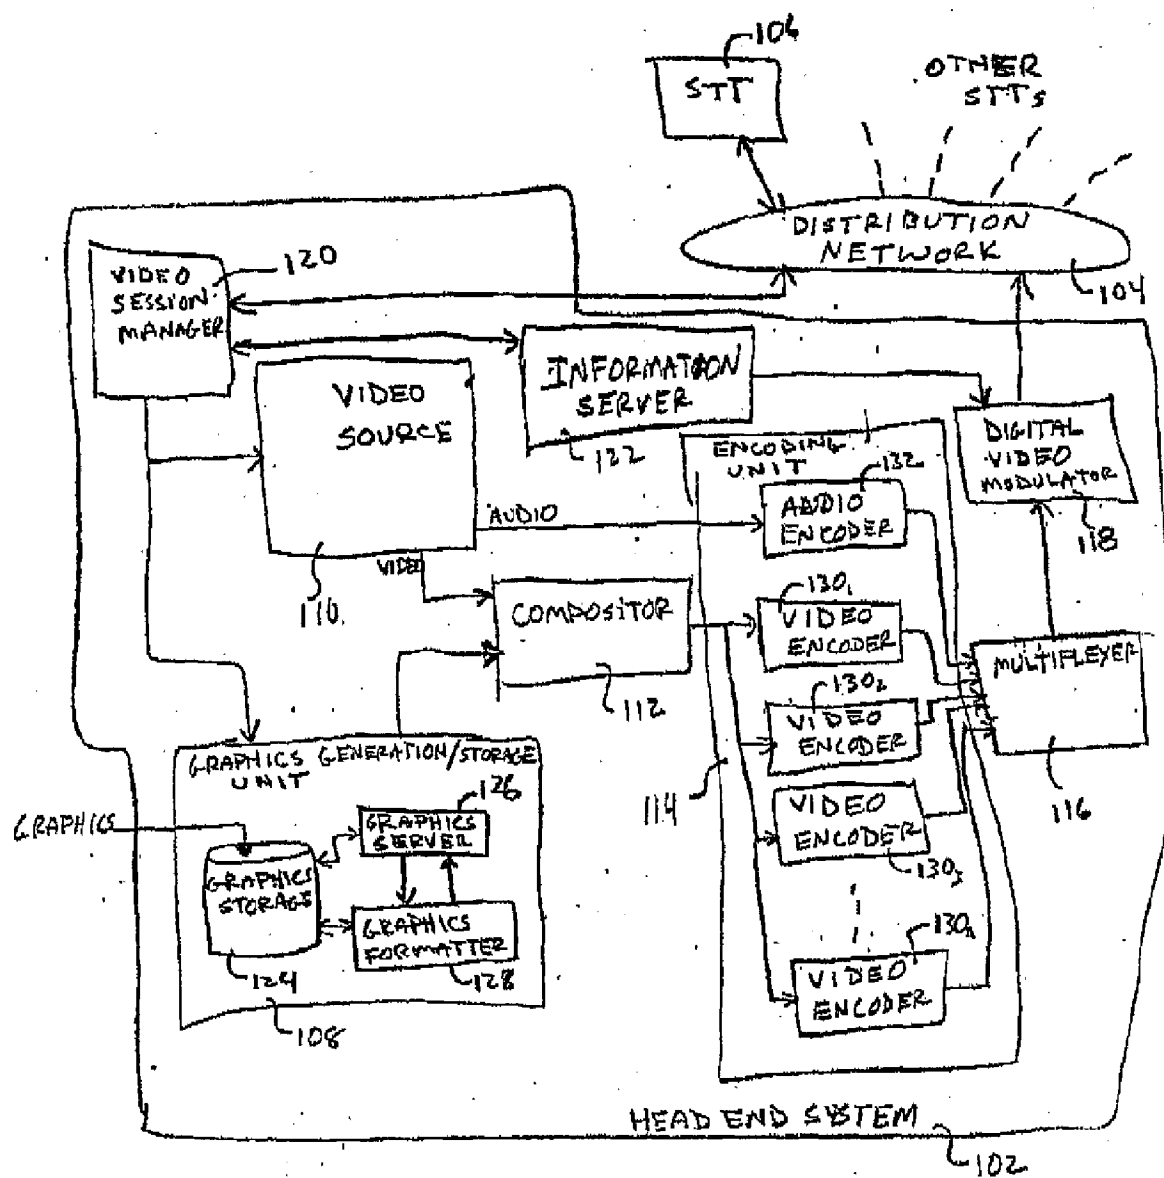 106
STT
OTHER
STTs
DISTRIBUTION
NETWORK
104
VIDEO
SESSION
MANAGER
120
VIDEO
SOURCE
110
INFORMATION
SERVER
122
ENCODING
UNIT
132
AUDIO
ENCODER
DIGITAL
VIDEO
MODULATOR
118
AUDIO
VIDEO
COMPOSITOR
112
130₁
VIDEO
ENCODER
130₂
VIDEO
ENCODER
VIDEO
ENCODER
130₃
130ₙ
VIDEO
ENCODER
114
MULTIPLEXER
116
GRAPHICS GENERATION/STORAGE
UNIT
GRAPHICS
126
GRAPHICS
SERVER
GRAPHICS
STORAGE
124
GRAPHICS
FORMATTER
128
108
HEAD END SYSTEM
102